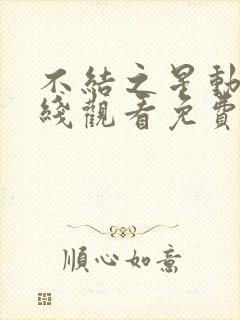 不結之星動
綫觀看免費
順心如意